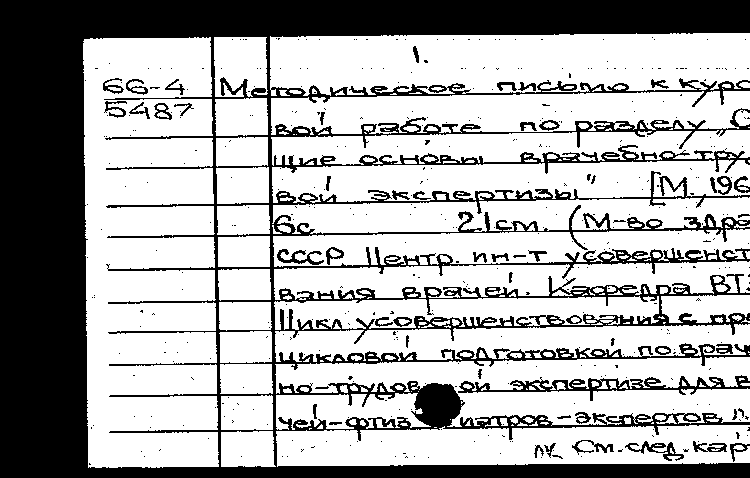 1.
66-4 Методическое письмо к курсо
5487
вой работе по разделу „О
щие основы врачебно-тру
вой экспертизы" [М., 196
6с 21cm. (М-во здра
СССР. Центр. ин-т усовершенст
вования врачей. Кафедра ВТЭ
Цикл усовершенствования с пре
цикловой подготовкой по враче
но-трудов ой экспертизе для в
чей-фтиз иатров-экспертов,
См. след. кар